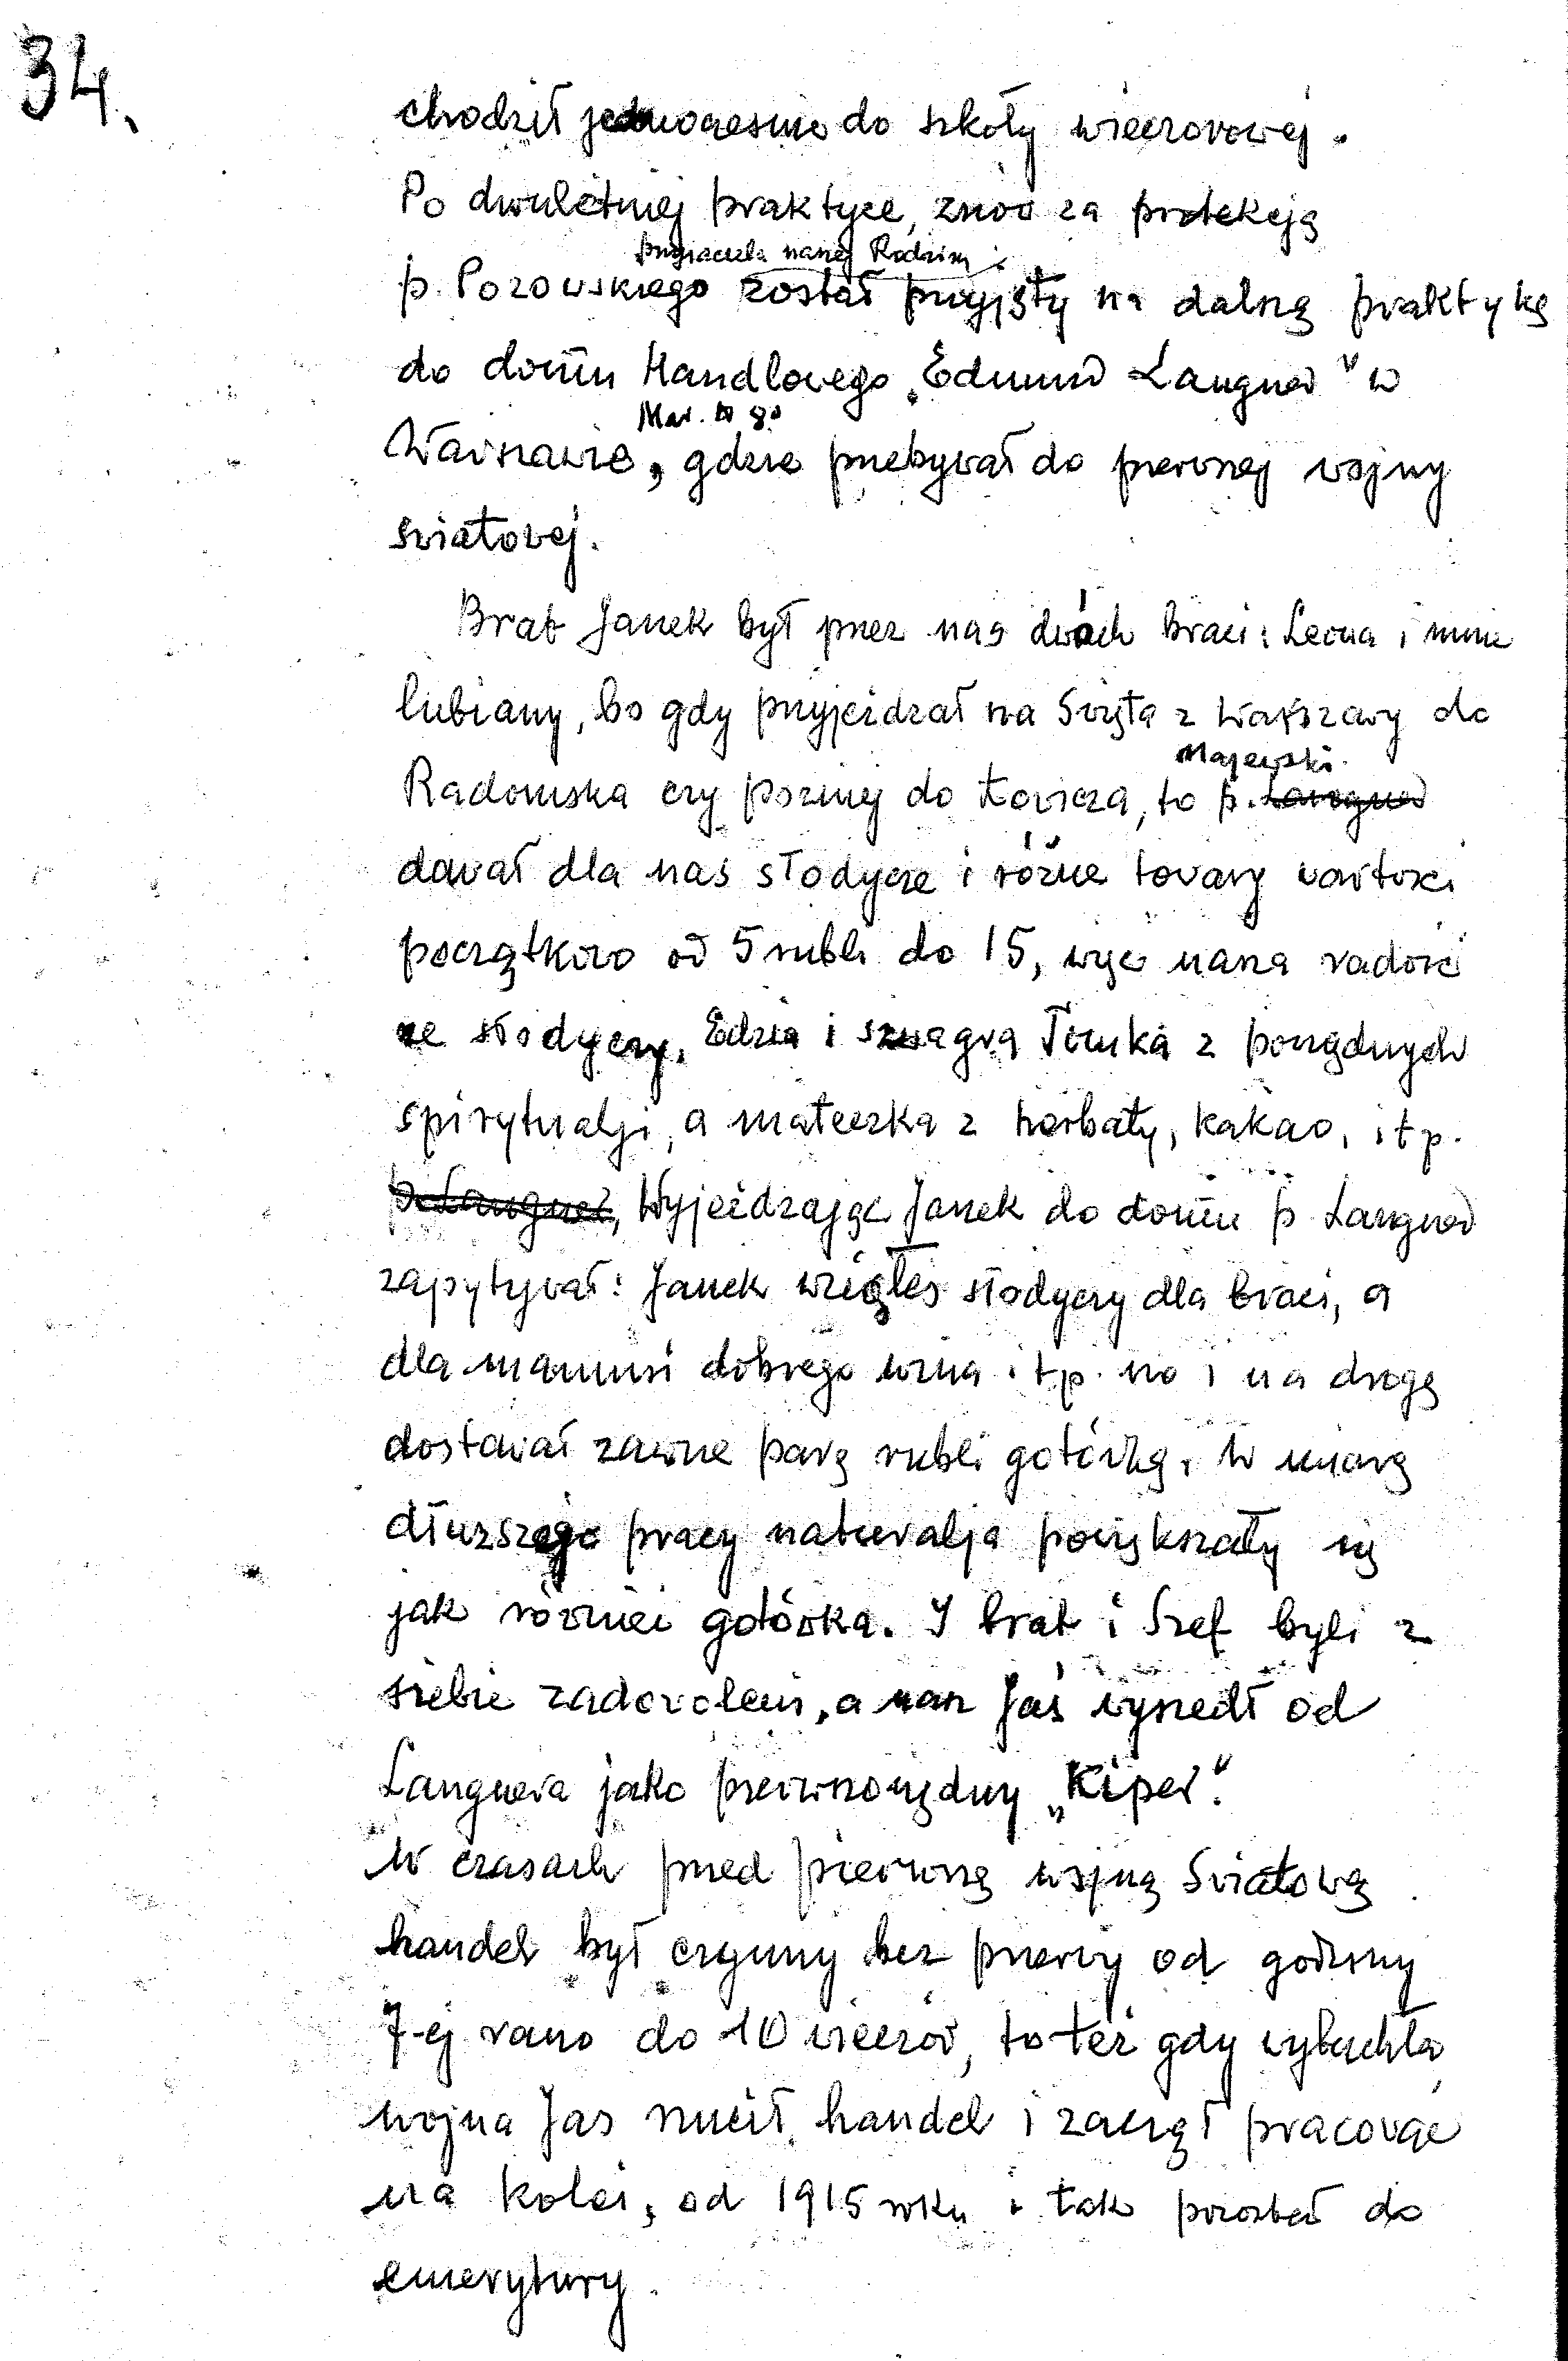 34.
chodził jednocześnie do szkoły wieczorowej.
Po dwuletniej praktyce, znów za protekcją
przyjaciela naszej Rodziny
p. Pozowskiego został przyjęty na dalszą praktykę
do domu Handlowego „Edmund Langner" w
Mar. 8
Warszawie, gdzie przebywał do pierwszej wojny
światowej.
Brat Janek był przez nas dwóch braci: Leona i mnie
lubiany, bo gdy przyjeżdżał na Święta z Warszawy do
Majewski
Radomska czy poźniej do Łowicza, to p. Langner
dawał dla nas słodycze i różne towary wartości
początkowo od 5 rubli do 15, więc nasza radość
ze słodyczy, Edzia i szwagra Tomka z porządnych
spirytualji, a mateczka z herbaty, kakao, itp.
p. Langner, Wyjeżdzając Janek do domu p Langner
zapytywał: Janek wziąłeś słodyczy dla braci, a
dla mamusi dobrego wina itp. no i na drogę
dostawał zawsze parę rubli gotówką, W miarę
dłuzszej pracy naturalja powiększały się
jak również gotówka. I brat i Szef byli z
siebie zadowoleni, a nasz Jaś wyszedł od
Langnera jako pierwszorzędny „Kiper".
W czasach przed pierwszą wojną Światową
handel był czynny bez przerwy od godziny
7-ej rano do 10 wieczór, to też gdy wybuchła
wojna Jaś rzucił handel i zaczął pracować
na kolei, od 1915 roku i tak pozostał do
emerytury.